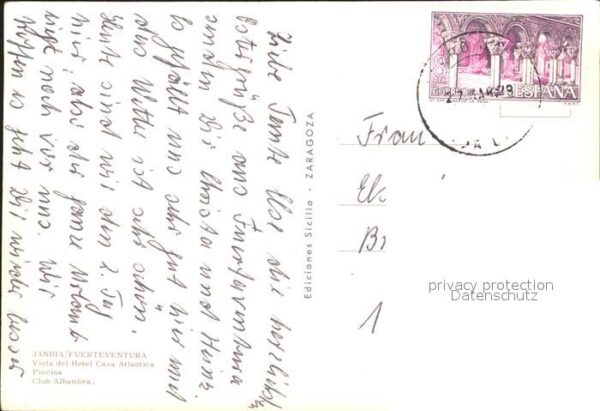 Liebe Tante Else die herzlichsten
Ostergrüße aus Fuerteventura
senden Dir Christa und Heinz.
Es gefällt uns sehr gut hier und
das Wetter ist sehr schön.
Heute sind wir den 2. Tag
hier, aber der ganze Urlaub
liegt noch vor uns. Wir
hoffen es geht Dir wieder besser
JANDIA/FUERTEVENTURA
Vista del Hotel Casa Atlantica
Piscina
Club Alhambra.
Ediciones Sicilia - ZARAGOZA
8
PTA
CORREOS
ESPAÑA
Frau
El
Br
1
privacy protection
Datenschutz